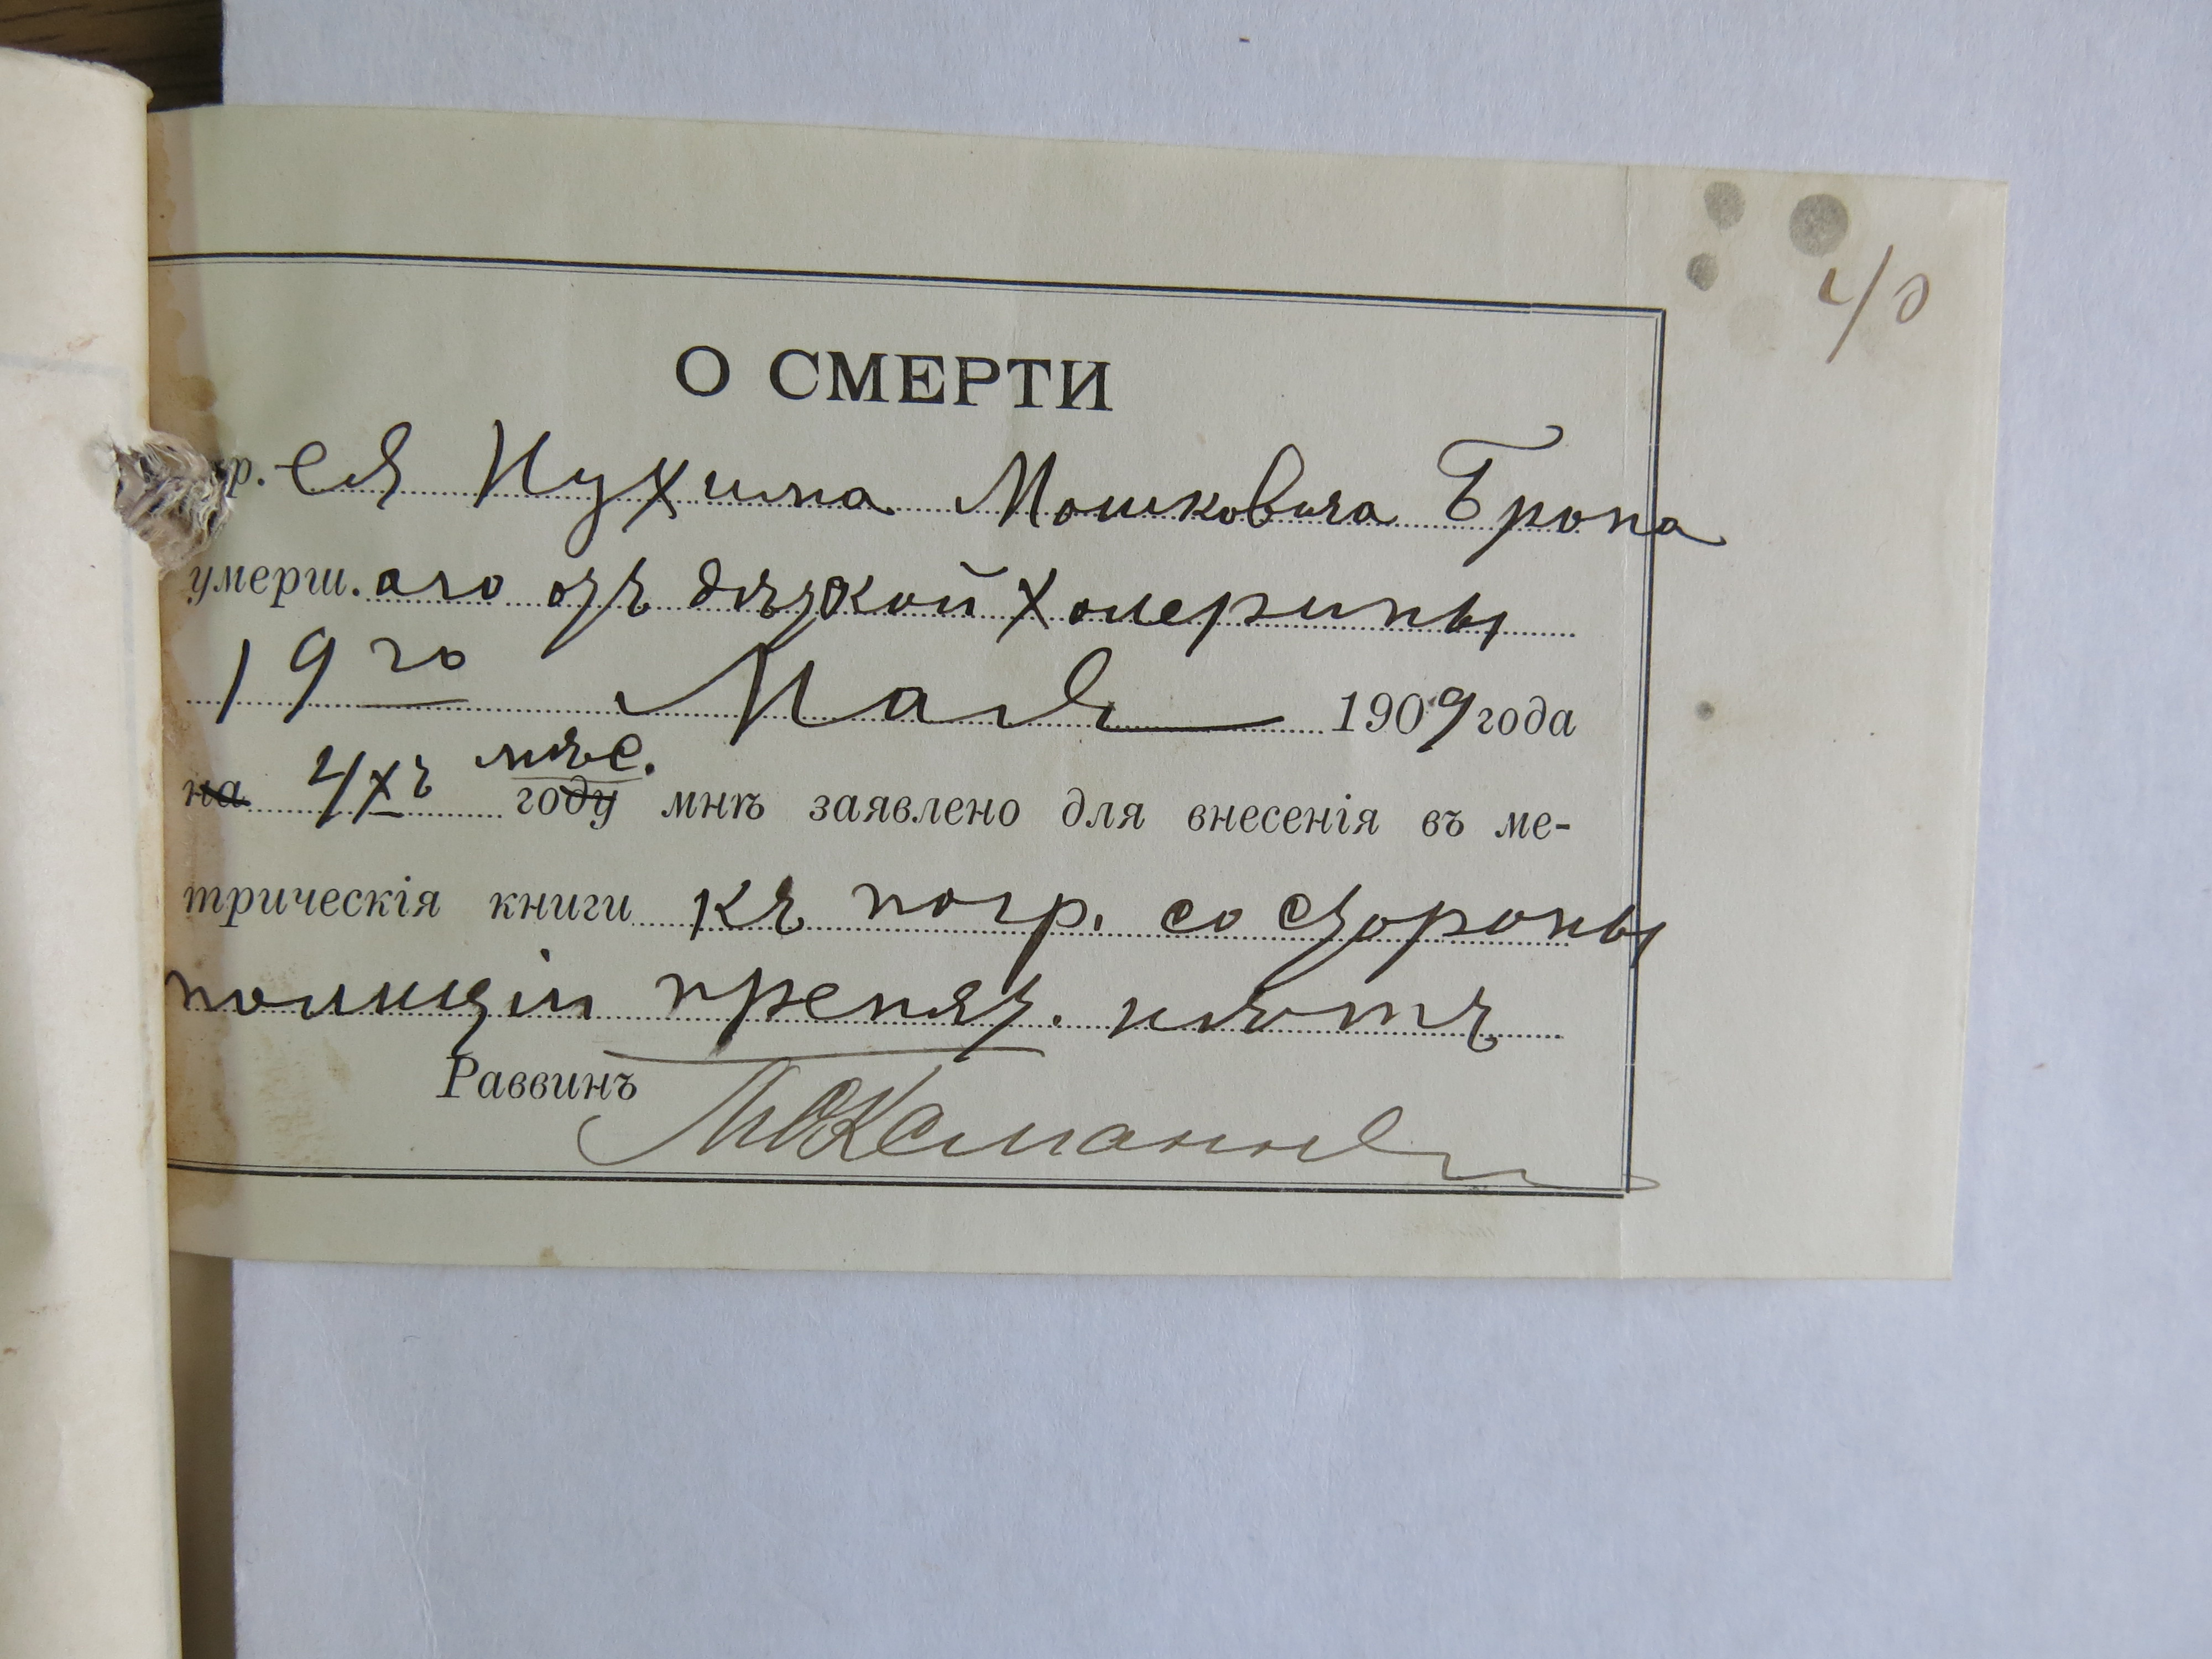 40
О СМЕРТИ
р. ея Нухима Мошковича Брона
умерш. аго отъ дѣтской холерины
19го Мая 1909 года
на 4хъ мѣс. году мнѣ заявлено для внесенія въ ме-
трическія книги къ погр. со стороны
полиціи препят. нѣтъ
Раввинъ